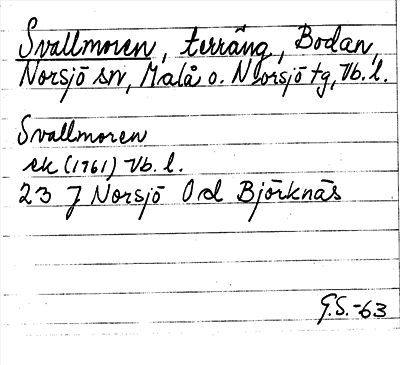 Svallmoren, terräng, Bodan,
Norsjö sn, Malå o. Norsjö tg, Vb. l.
Svallmoren
ek (1761) Vb. l.
23 J Norsjö Od Björknäs
G.S.-63